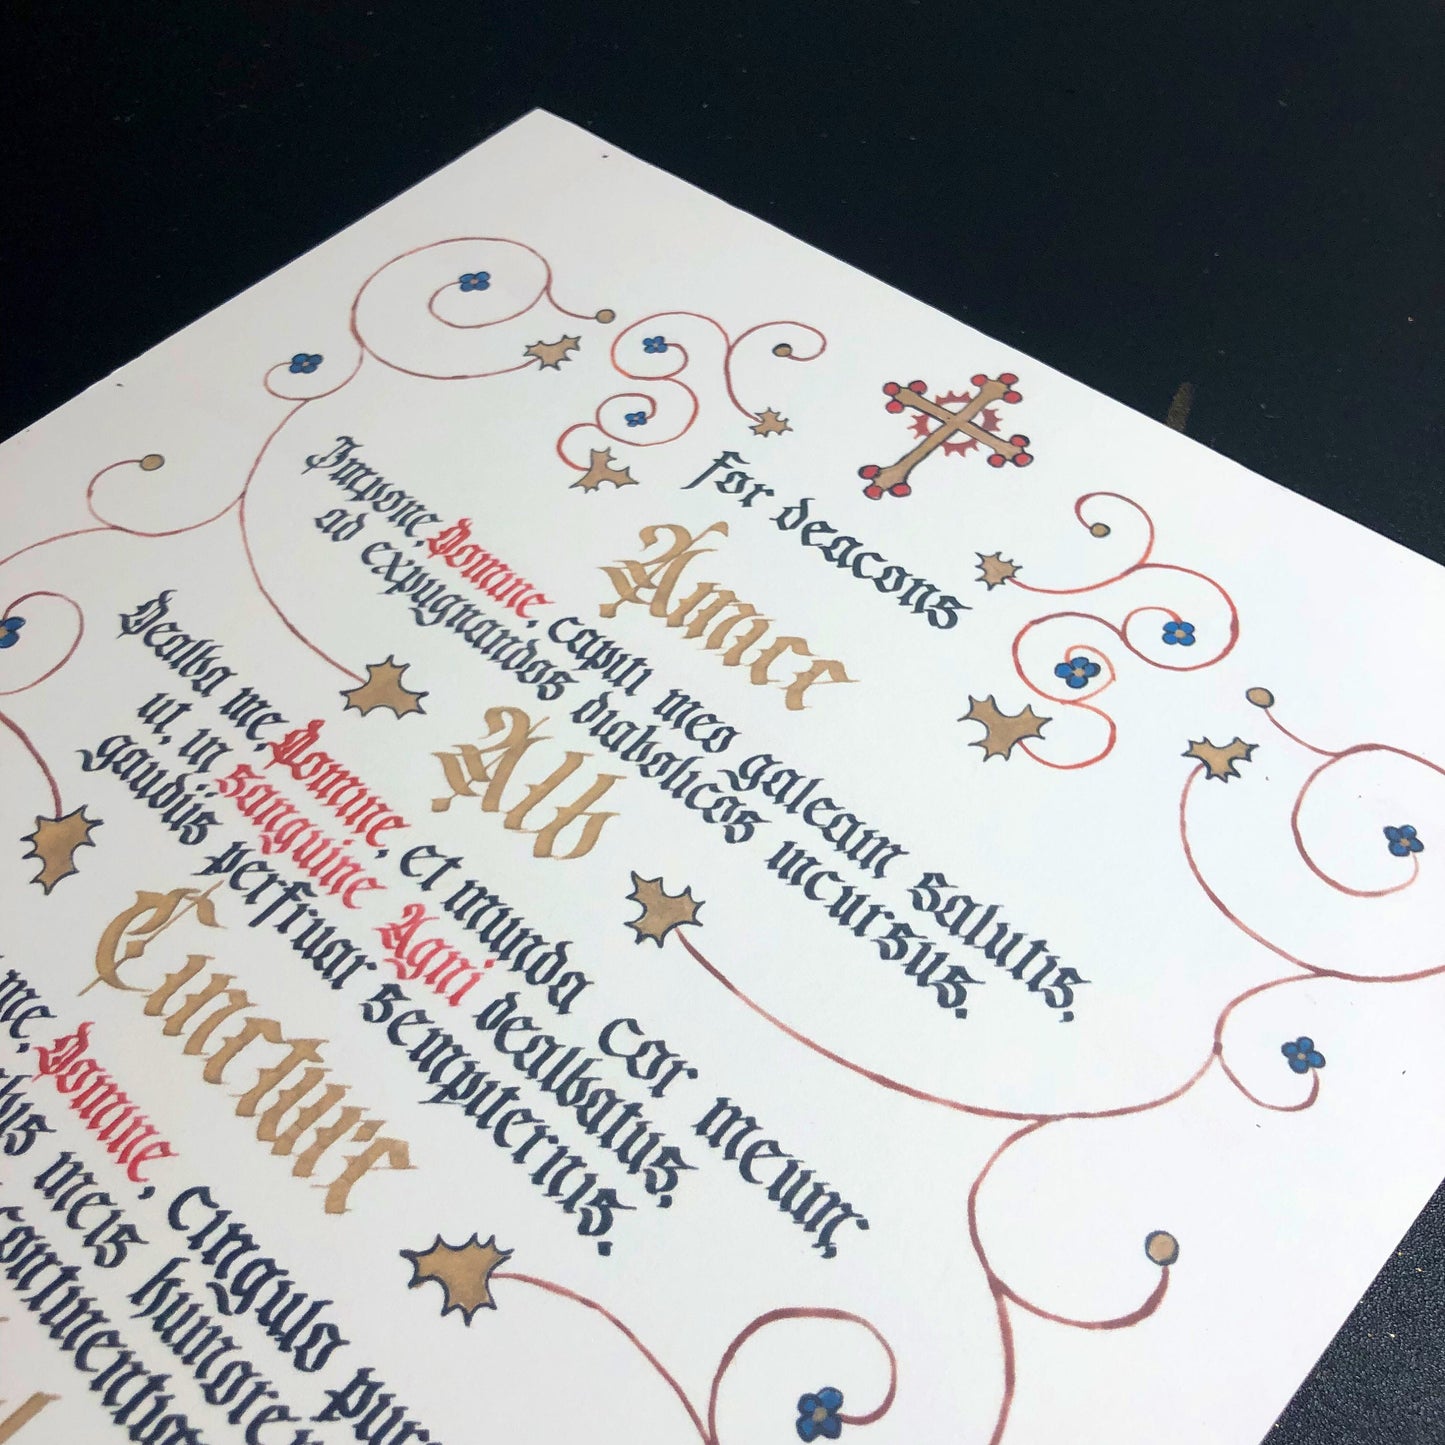 for deacons
Amice
Impone, Domine, capiti meo galeam salutis,
ad expugnandos diabolicos incursus.
Alb
Dealba me, Domine, et munda cor meum,
ut, in sanguine Agni dealbatus,
gaudiis perfruar sempiternis.
Cincture
me, Domine, cingulo
meis humore